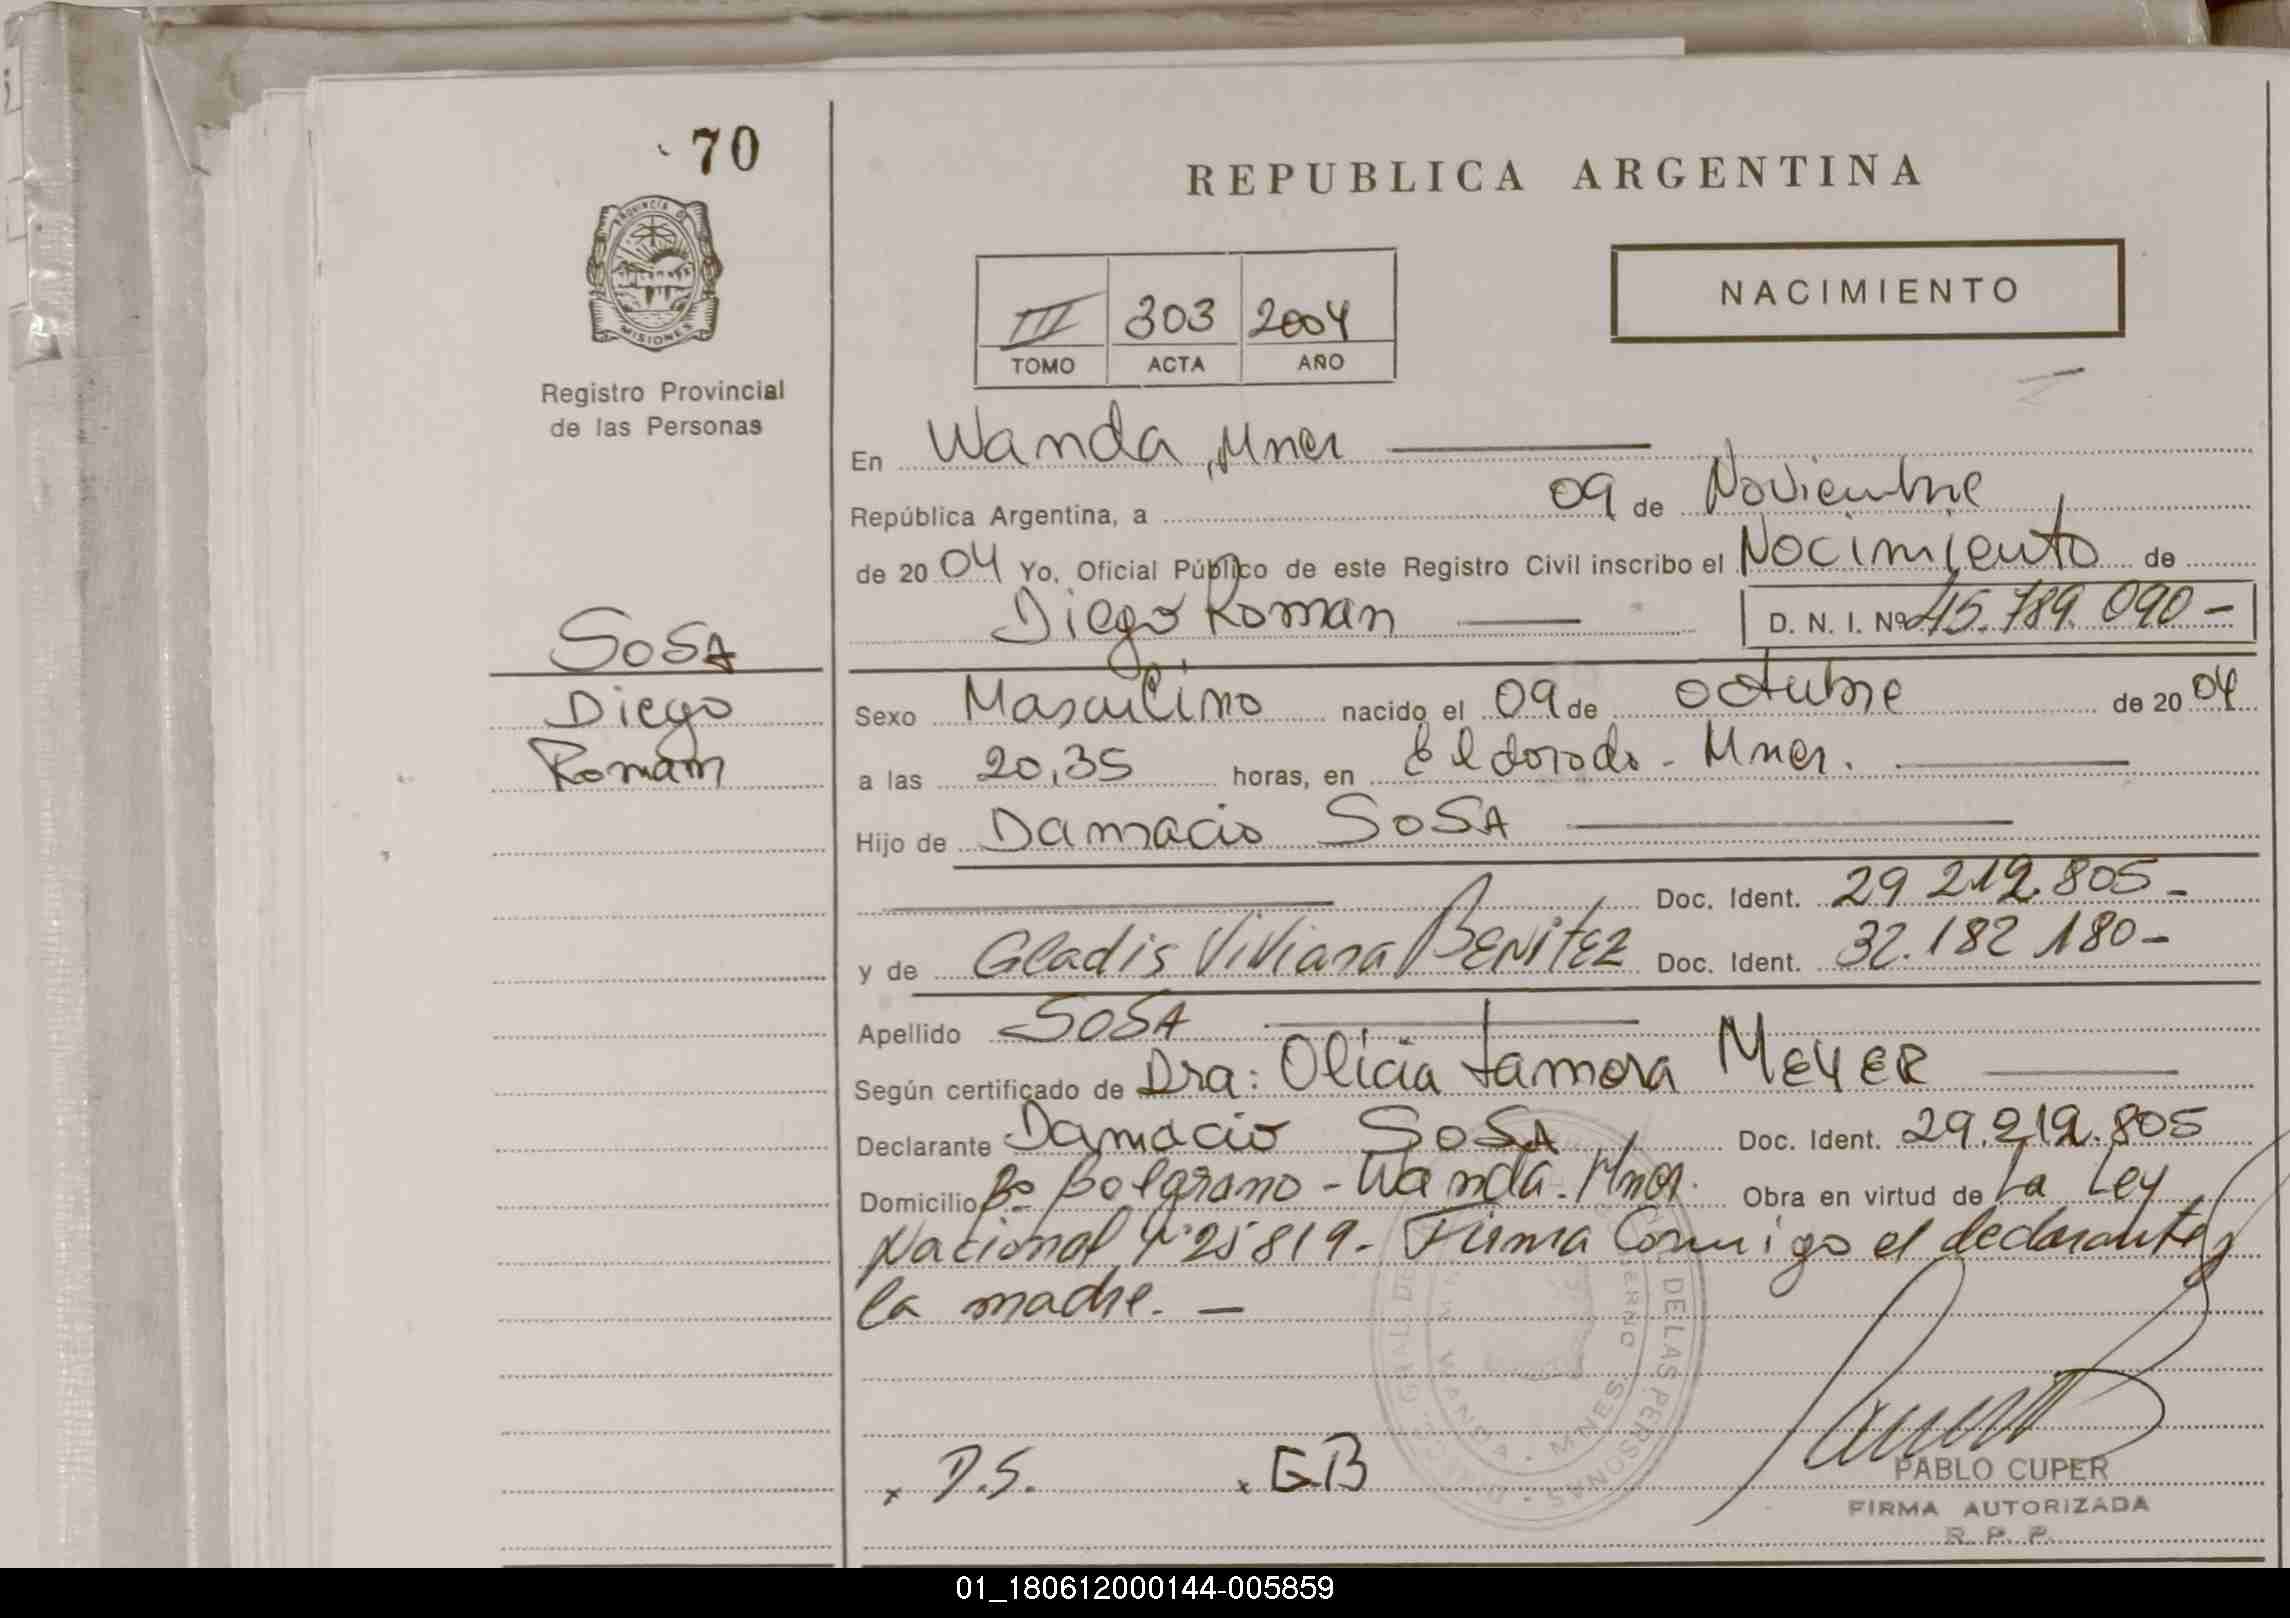 70
REPUBLICA ARGENTINA
PROVINCIA DE
MISIONES
NACIMIENTO
III 303 2004
TOMO ACTA AÑO
Registro Provincial
de las Personas
En Wanda, Mnes
República Argentina, a 09 de Noviembre
de 20 04 Yo, Oficial Público de este Registro Civil inscribo el Nacimiento de
Diego Roman D. N. I. Nº 45.789.090-
SOSA
Diego
Roman
Sexo Masculino nacido el 09 de octubre de 20 04
a las 20,35 horas, en Eldorado - Mnes.
Hijo de Damacio SOSA
Doc. Ident. 29.212.805-
y de Gladis Viviana BENITEZ Doc. Ident. 32.182.180-
Apellido SOSA
Según certificado de Dra: Olicia Tamara MEYER
Declarante Damacio SOSA Doc. Ident. 29.212.805
Domicilio Bº Belgrano - Wanda. Mnes. Obra en virtud de La Ley
Nacional Nº 25819- Firma Conmigo el declarante y
la madre. -
DE LAS PERSONAS
WANDA - MNES.
x D.S. x GB
PABLO CUPER
FIRMA AUTORIZADA
R. P. P.
01_180612000144-005859